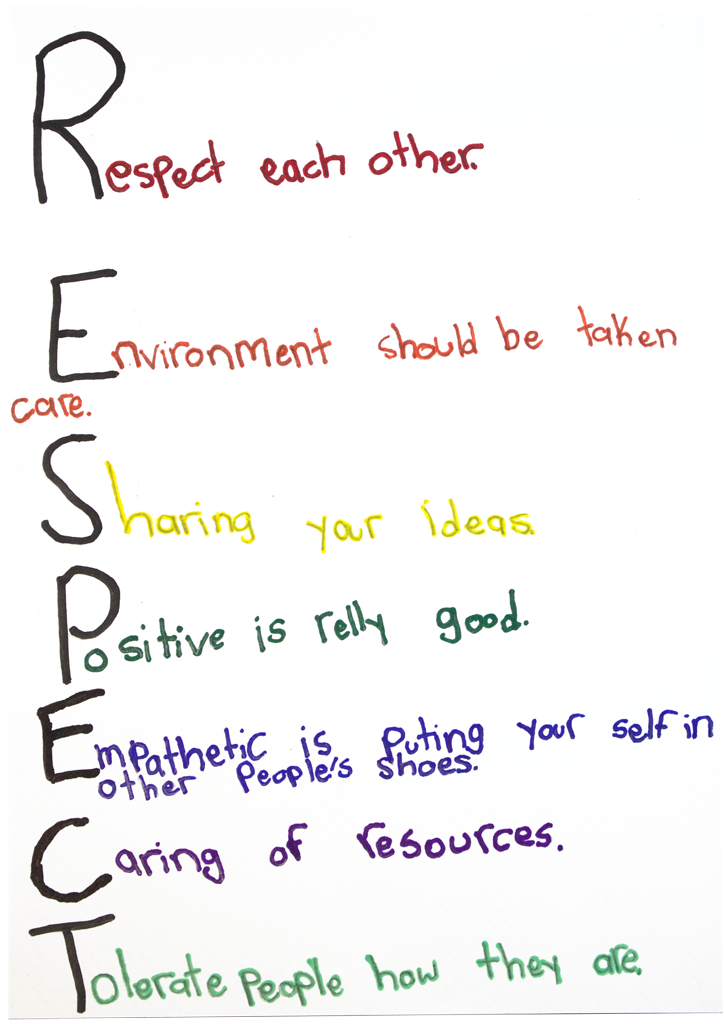 Respect each other.
Environment should be taken
care.
Sharing your ideas.
Positive is relly good.
Empathetic is puting your self in
other people's shoes.
Caring of resources.
Tolerate people how they are.